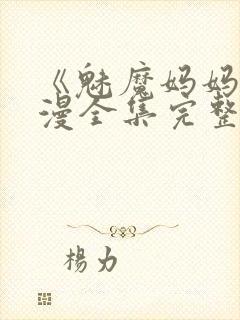 《魅魔妈妈
漫全集完整
杨力